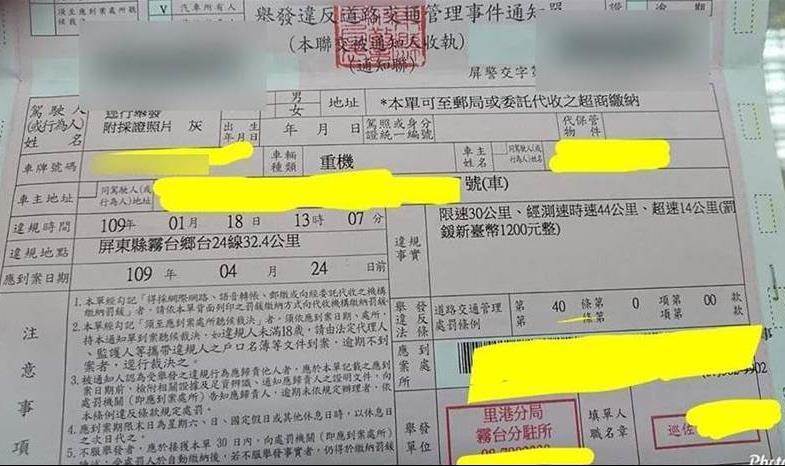 須至應到案處所聽候裁決
V
汽車所有人
舉發違反道路交通管理事件通知
(本聯交被通知人收執)
(通知聯)
逾期
屏警交字第
駕駛人
(或行為人)
姓名
逕行舉發
附採證照片 灰
出生
年月日
男
女
年 月 日
地址
*本單可至郵局或委託代收之超商繳納
駕照或身分
證統一編號
代保管
物件
車牌號碼
車輛
種類
重機
車主
姓名
同駕駛人(或
行為人)
車主地址
同駕駛人(或
行為人)地址
號(車)
違規時間
109年 01月 18日 13時 07分
違規地點
屏東縣霧台鄉台24線32.4公里
應到案日期
109 年 04 月 24 日前
違規
事實
限速30公里、經測速時速44公里、超速14公里(罰
鍰新臺幣1200元整)
舉發
違反
法條
道路交通管理
處罰條例
第 40 條第 0 項第 00 款
第 條第 項第 款
應到案
處所
注意事項
1.本單經勾記「得採網際網路、語音轉帳、郵繳或向經委託代收之機構
繳納罰鍰」者,請依本單背面列印之罰鍰繳納方式向代收機構繳納罰鍰。
2.本單經勾記「須至應到案處所聽候裁決」者,須依應到案日期、處所,
持本通知單到案聽候裁決。如違規人未滿18歲,請由法定代理人
、監護人等攜帶違規人之戶口名簿等文件到案,逾期不到
案者,逕行裁決之。
3.被通知人認為受舉發之違規行為應歸責他人者,須依應於本單記載之應到
案日期前,檢附相關證據及足資辨識、通知應歸責人之證明文件,向
處罰機關(即應到案處所)告知應歸責人,逾期未依規定辦理者,依
本條例違反條款規定處罰。
4.應到案期限末日為星期六、日、國定假日或其他休息日時,以休息日
之次日代之。
5.不服舉發事實者,應於接獲本單30日內,向處罰機關(即應到案處所)
舉發
單位
里港分局
霧台分駐所
填單人
職名章
巡佐